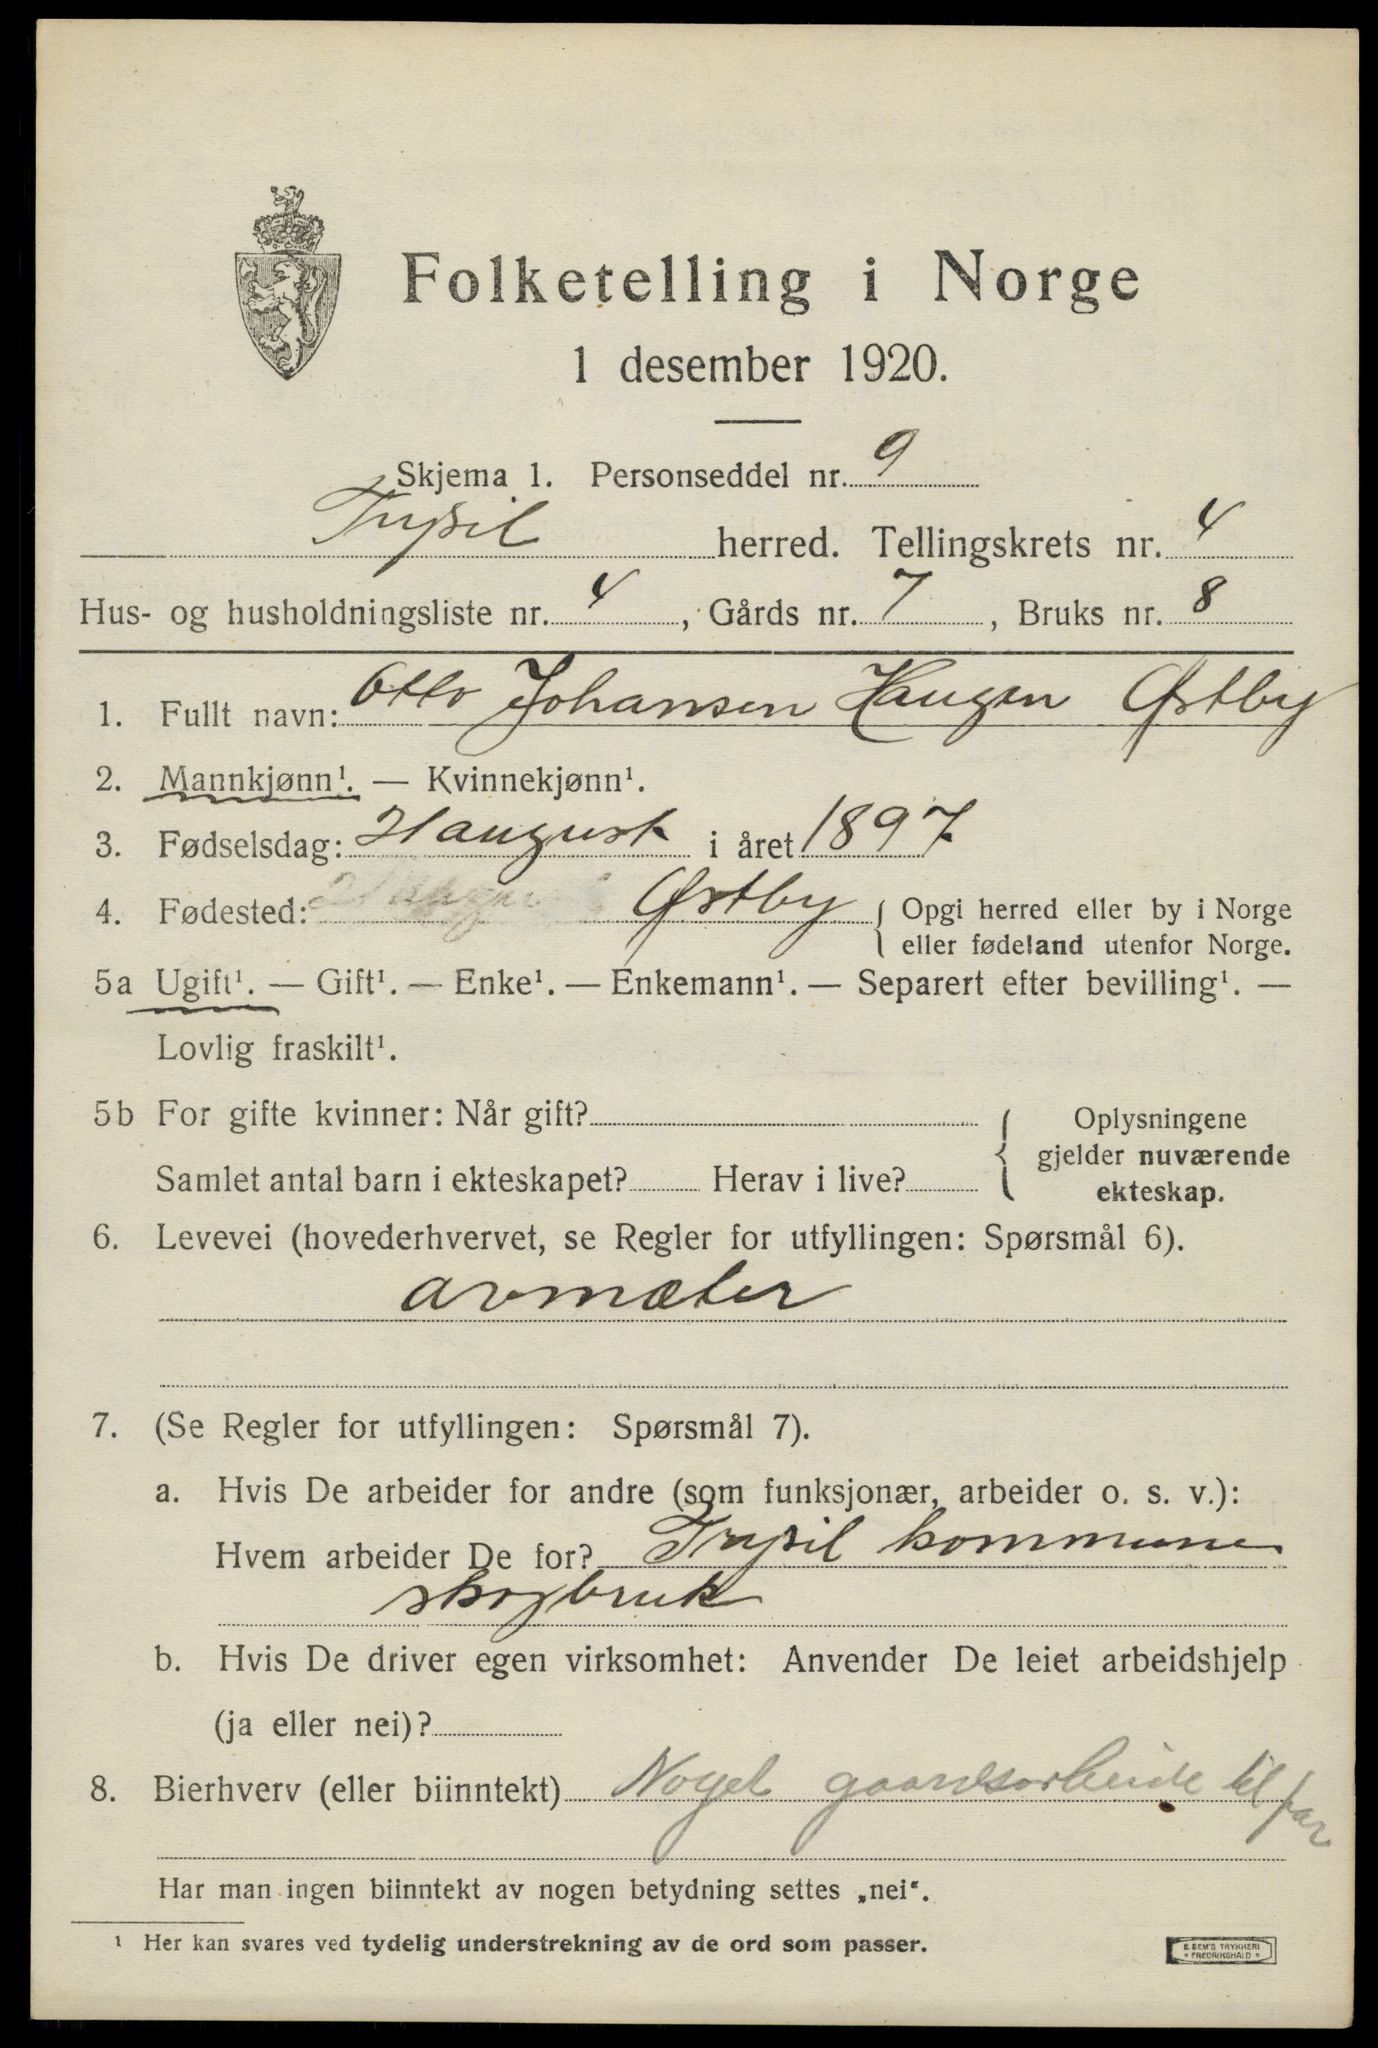 Folketelling i Norge
1 desember 1920.
Skjema 1. Personseddel nr. 9
Trysil herred. Tellingskrets nr. 4
Hus- og husholdningsliste nr. 4, Gårds nr. 7, Bruks nr. 8
1. Fullt navn: Otto Johansen Haugen Østby
2. Mannkjønn¹. — Kvinnekjønn¹.
3. Fødselsdag: 21 august i året 1897
4. Fødested: Østby { Opgi herred eller by i Norge
eller fødeland utenfor Norge.
5a Ugift¹. — Gift¹. — Enke¹. — Enkemann¹. — Separert efter bevilling¹. —
Lovlig fraskilt¹.
5b For gifte kvinner: Når gift? { Oplysningene
gjelder nuværende
Samlet antal barn i ekteskapet? Herav i live? ekteskap.
6. Levevei (hovederhvervet, se Regler for utfyllingen: Spørsmål 6).
avmæter
7. (Se Regler for utfyllingen: Spørsmål 7).
a. Hvis De arbeider for andre (som funksjonær, arbeider o. s. v.):
Hvem arbeider De for? Trysil kommune
skogbruk
b. Hvis De driver egen virksomhet: Anvender De leiet arbeidshjelp
(ja eller nei)?
8. Bierhverv (eller biinntekt) Noget gaardsarbeide til far
Har man ingen biinntekt av nogen betydning settes „nei“.
¹ Her kan svares ved tydelig understrekning av de ord som passer.
E. SEM'S TRYKKERI
* FREDRIKSHALD *